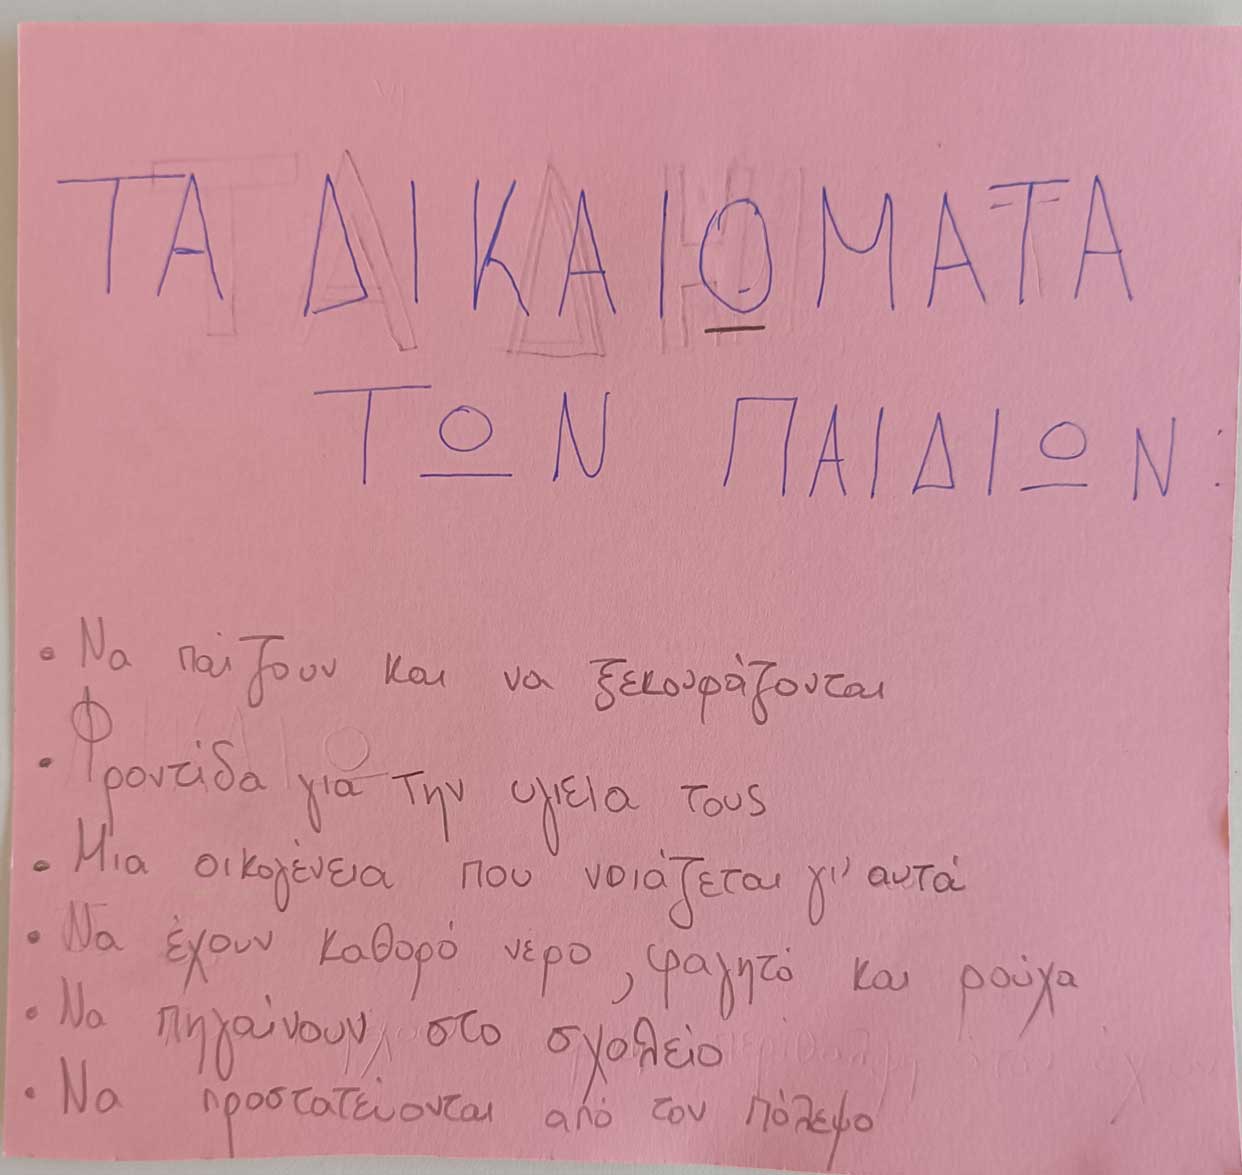 ΤΑ ΔΙΚΑΙΩΜΑΤΑ
ΤΩΝ ΠΑΙΔΙΩΝ:
• Να παίζουν και να ξεκουράζονται
• Φροντίδα για την υγιεία τους
• Μια οικογένεια που νοιάζεται γι' αυτά
• Να έχουν καθαρό νερο, φαγητό και ρούχα
• Να πηγαίνουν στο σχολείο
• Να προστατεύονται από τον πόλεμο